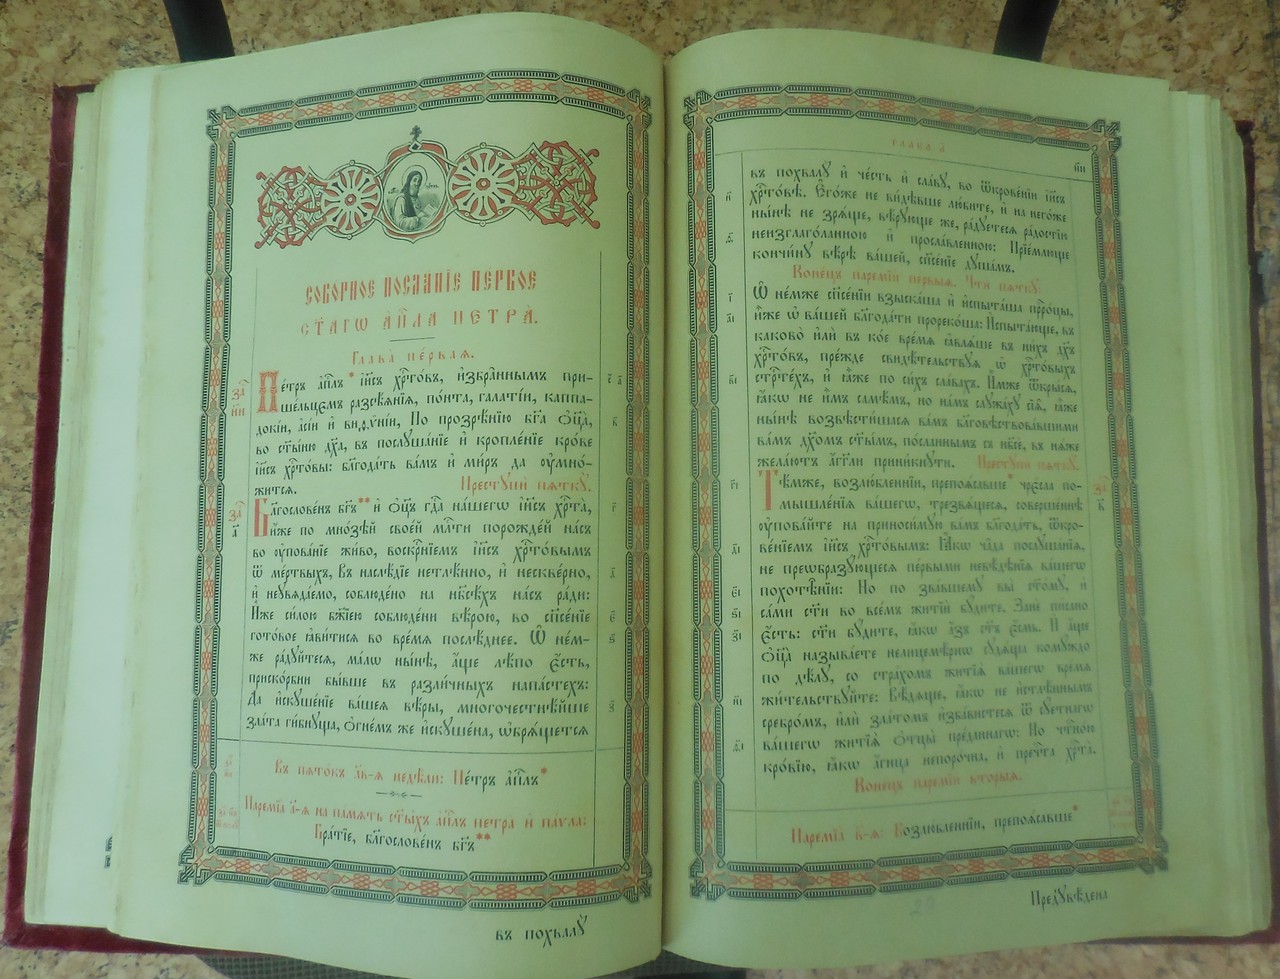 СОБОРНОЕ ПОСЛАНІЕ ПЕРВОЕ
СТ҃АГѠ АП҇ЛА ПЕТРА̀.
Глава̀ пе́рвая.
Пе́тръ а҆п҇лъ * і҆и҃съ хр҇то́въ, и҆збра̑ннымъ при-
ше́льцємъ разсѣ́янїѧ, по́нта, гала́тїи, каппа-
докі́и, а҆сі́и и҆ виѳѷні́и, По прозрѣ́нїю бг҃а ѻ҆ц҃а̀,
во ст҃ы́ню дх҃а, въ послꙋша́нїе и҆ кропле́нїе кро́ве
і҆и҃съ хр҇то́вы: блг҇да́ть ва́мъ и҆ ми́ръ да ᲂу҆мно́-
житсѧ.
Престꙋпѝ пѧткꙋ̀.
Блг҇слове́нъ бг҃ъ ** и҆ ѻ҆ц҃ъ гд҇а на́шегѡ і҆и҃са хр҇та̀,
и҆́же по мно́зѣй свое́й млⷭ҇ти порожде́й на́съ
во ᲂу҆пова́нїе жи́во, воскр҇нїемъ і҆и҃съ хр҇то́вымъ
ѿ ме́ртвыхъ, Въ наслѣ́дїе нетлѣ́нно, и҆ нескве́рно,
и҆ неᲂувѧда́емо, соблюде́но на нб҃сѣ́хъ на́съ ра́ди:
И҆̀же си́лою бж҃їею соблюде́ни вѣ́рою, во сп҃се́нїе
гото́вое ꙗ҆ви́тисѧ во вре́мѧ послѣ́днее. Ѡ҆ не́м-
же ра́дꙋйтесѧ, ма́лѡ нн҃ѣ, а҆́ще лѣ́по є҆́сть,
приско́рбни бы́вше въ разли́чныхъ напа́стехъ:
Да и҆скꙋше́нїе ва́шеѧ вѣ́ры, многочестнѣ́йше
зла́та ги́бнꙋща, ѻ҆гне́мъ же и҆скꙋше́на, ѡ҆брѧ́щетсѧ
Въ пѧто́къ л҃в-ѧ недѣ́ли: Пе́тръ а҆п҇лъ *
Паремі́а а҃-ѧ на па́мѧть ст҃ы́хъ а҆п҇лъ петра̀ и҆ па́ѵла:
Бра́тїе, блг҇слове́нъ бг҃ъ **
въ похвалꙋ̀
глава̀ а҃
въ похвалꙋ̀ и҆ че́сть и҆ сла́вꙋ, во ѿкрове́нїи і҆и҃съ
хр҇то́вѣ. Є҆го́же не ви́дѣвше лю́бите, и҆ на него́же
ны́нѣ не зрѧ́ще, вѣ́рꙋюще же, ра́дꙋетесѧ ра́достїю
неизглаго́ланною и҆ просла́вленною: Прїе́млюще
кончи́нꙋ вѣ́рѣ ва́шей, сп҃се́нїе дꙋша́мъ.
Коне́цъ паремі́и пе́рвыѧ. Чтѝ пѧткꙋ̀.
Ѡ҆ не́мже сп҃се́нїи взыска́ша и҆ и҆спыта́ша прⷪ҇ро́цы,
и҆̀же ѡ҆ ва́шей блг҇да́ти прореко́ша: И҆спыта́юще, въ
каково̀ и҆лѝ въ ко́е вре́мѧ ꙗ҆влѧ́ше въ ни́хъ дх҃ъ
хр҇то́въ, пре́жде свидѣ́тельствꙋѧ ѡ҆ хр҇то́выхъ
стрⷭ҇те́хъ, и҆ ꙗ҆̀же по си́хъ сла́вахъ. И҆̀мже ѿкры́сѧ,
ꙗ҆́кѡ не и҆̀мъ самѣ́мъ, но на́мъ слꙋжа́хꙋ сїѧ̑, ꙗ҆̀же
ны́нѣ возвѣсти́шасѧ ва́мъ блг҇вѣствова́вшими
ва́мъ дх҃омъ ст҃ы́мъ, по́сланнымъ съ нб҃сѐ, въ нѧ́же
жела́ютъ а҆́гг҃ли прини́кнꙋти.
Престꙋпѝ пѧткꙋ̀.
Тѣ́мже, возлю́бленнїи, препоѧ́савше * чре́сла по-
мышле́нїѧ ва́шегѡ, трезвѧ́щесѧ, соверше́ннѣ
ᲂу҆пова́йте на приноси́мꙋю ва́мъ блг҇да́ть, ѿкро-
ве́нїемъ і҆и҃съ хр҇то́вымъ: Ꙗ҆́кѡ ча̑да послꙋша́нїѧ,
не преѡбразꙋ́ющесѧ пе́рвыми невѣ́дѣнїѧ ва́шегѡ
похотѣ́нїи: Но по зва́вшемꙋ вы̀ ст҃о́мꙋ, и҆
са́ми ст҃и во все́мъ житїѝ бꙋ́дите. Занѐ пи́сано
є҆́сть: ст҃и бꙋ́дите, ꙗ҆́кѡ а҆́зъ ст҃ъ є҆́смь. И҆ а҆́ще
ѻ҆ц҃а̀ называ́ете нелицемѣ́рнѡ сꙋдѧ́ща комꙋ́ждо
по дѣ́лꙋ, со стра́хомъ житїѧ̀ ва́шегѡ вре́мѧ
жи́тельствꙋйте: Вѣ́дѧще, ꙗ҆́кѡ не и҆стлѣ́ннымъ
сребро́мъ, и҆лѝ зла́томъ и҆зба́вистесѧ ѿ сꙋ́етнагѡ
ва́шегѡ житїѧ̀ ѻ҆тцы̀ пре́даннагѡ: Но чⷭ҇тно́ю
кро́вїю, ꙗ҆́кѡ а҆́гнца непоро́чна, и҆ пречⷭ҇та хр҇та̀.
Коне́цъ паремі́и вторы́ѧ.
Паремі́а в҃-ѧ: Возлю́бленнїи, препоѧ́савше *
Предꙋвѣ́дена